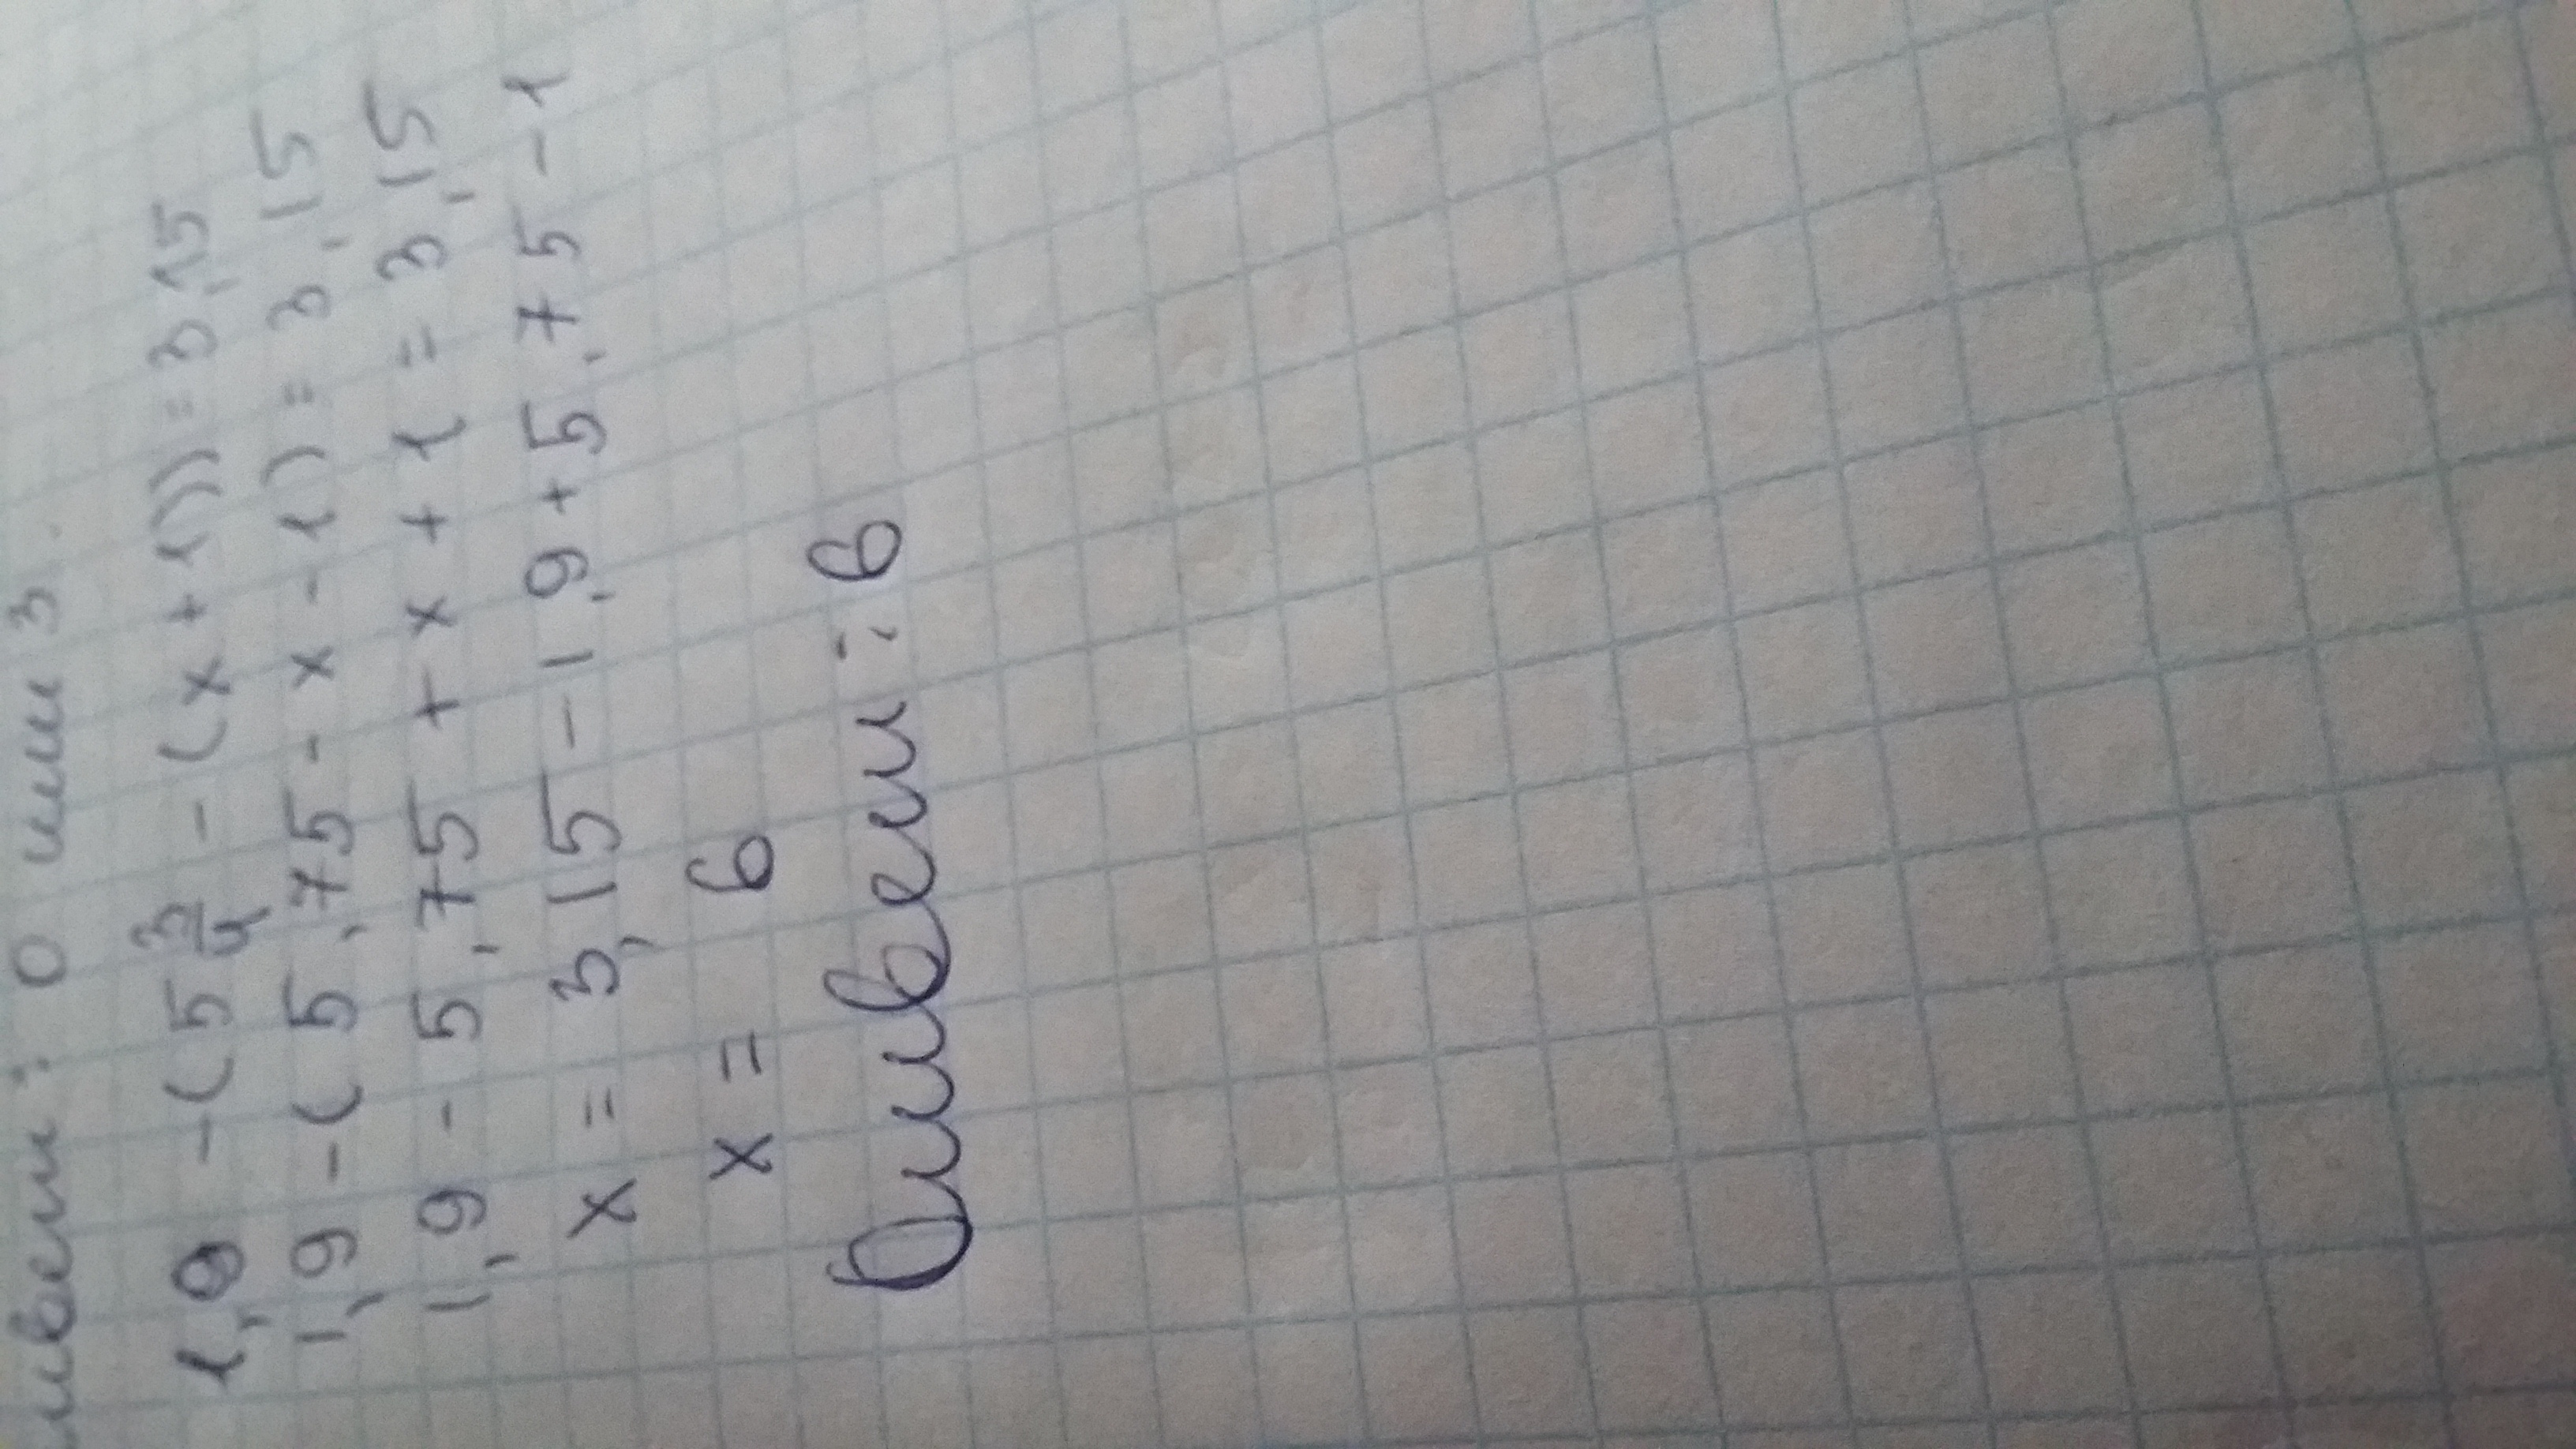 ответ: 0 или 3.
1,9 - (5 3/4 - (x + 1)) = 3,15
1,9 - (5,75 - x - 1) = 3,15
1,9 - 5,75 + x + 1 = 3,15
x = 3,15 - 1,9 + 5,75 - 1
x = 6
Ответ: 6